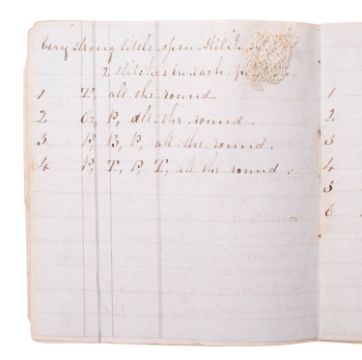 Very strong little open stitch
2 stitches in each
1 T, all the round
2 P, all the round.
3 P, B, P, all the round.
4 P, T, P, T, all the round.
1
2
3
4
5
6